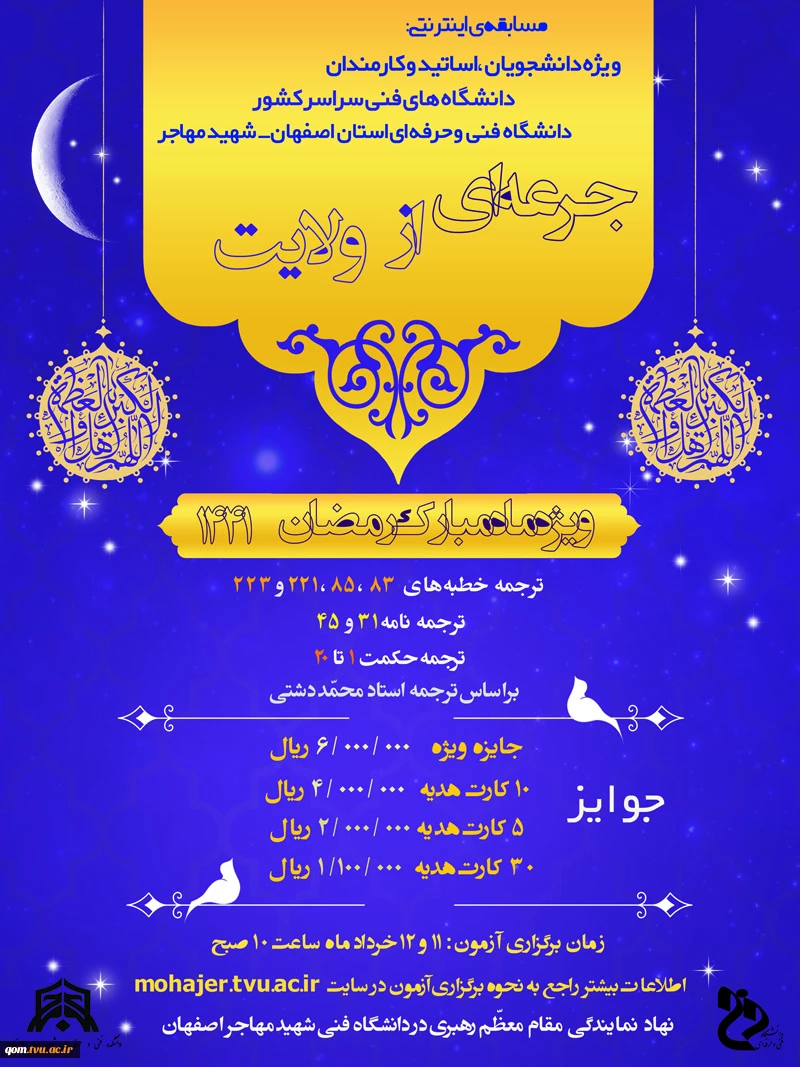 مسابقه‌ی اینترنتی:
ویژه دانشجویان ،اساتید و کارمندان
دانشگاه های فنی سراسر کشور
دانشگاه فنی و حرفه ای استان اصفهان_ شهید مهاجر
جرعه‌ای از ولایت
اللهم اهل الکبریاء والعظمة
اللهم اهل الکبریاء والعظمة
ویژه ماه مبارک رمضان ۱۴۴۱
ترجمه خطبه های ۸۳ ،۸۵ ،۲۲۱ و ۲۲۳
ترجمه نامه ۳۱ و ۴۵
ترجمه حکمت ۱ تا ۲۰
براساس ترجمه استاد محمّد دشتی
جوایز
جایزه ویژه ۶/۰۰۰/۰۰۰ ریال
۱۰ کارت هدیه ۴/۰۰۰/۰۰۰ ریال
۵ کارت هدیه ۲/۰۰۰/۰۰۰ ریال
۳۰ کارت هدیه ۱/۱۰۰/۰۰۰ ریال
زمان برگزاری آزمون : ۱۱ و ۱۲ خرداد ماه ساعت ۱۰ صبح
اطلاعات بیشتر راجع به نحوه برگزاری آزمون در سایت mohajer.tvu.ac.ir
نهاد نمایندگی مقام معظّم رهبری در دانشگاه فنی شهید مهاجر اصفهان
qom.tvu.ac.ir